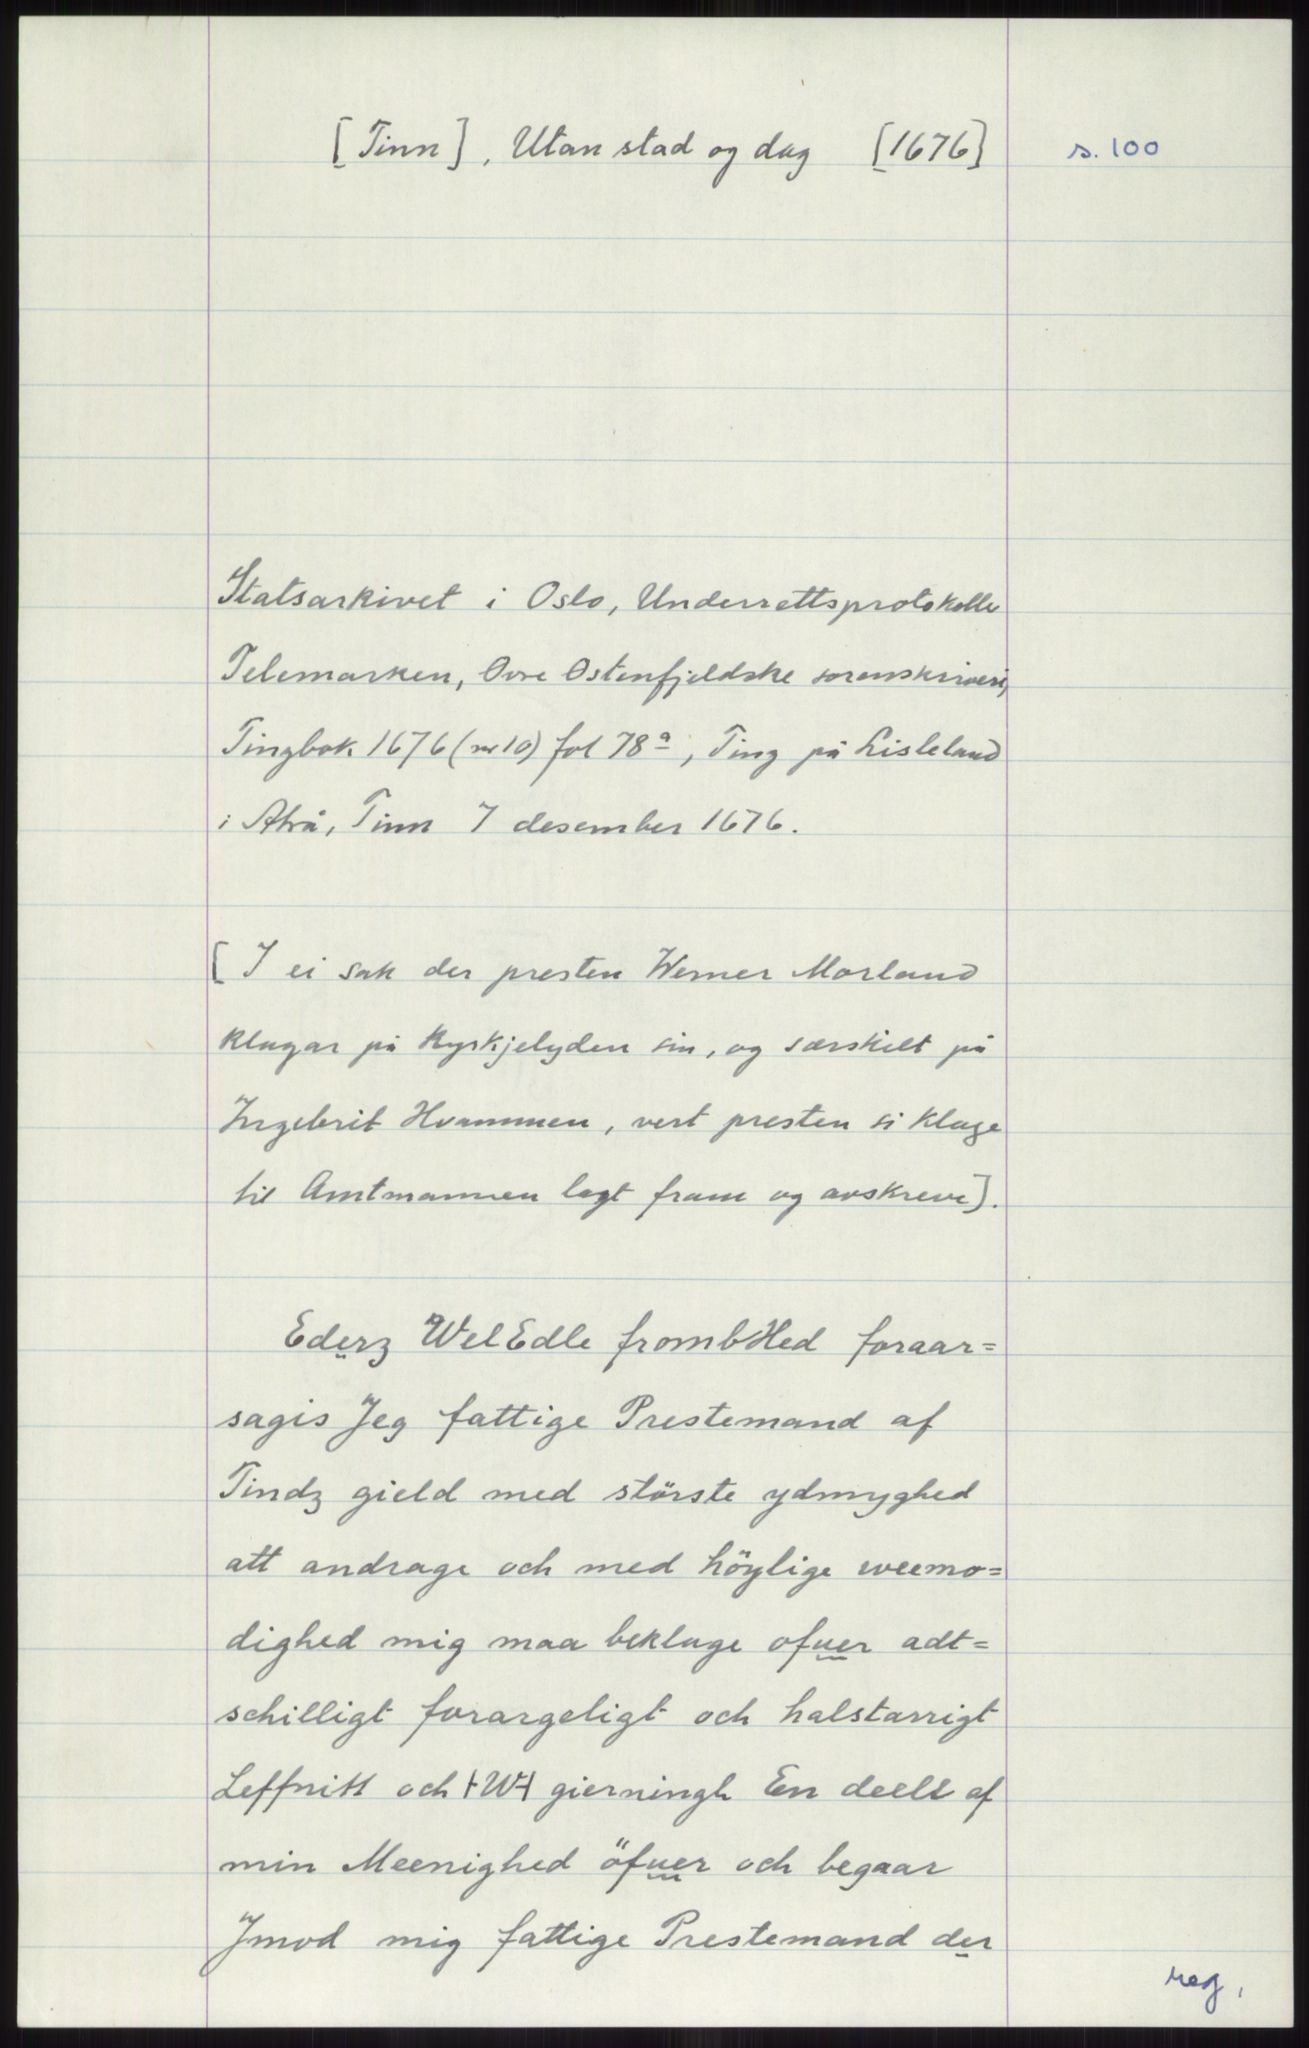 [Tinn], Utan stad og dag [1676] s. 100
Statsarkivet i Oslo, Underrettsprotokolle
Telemarken, Øvre Østenfjeldske sorenskriveri,
Tingbok 1676 (nr 10) fol 78a, Ting på Lisleland
i Atrå, Tinn 7 desember 1676.
[I ei sak der presten Werner Morland
klagar på kyrkjelyden sin, og særskilt på
Ingebrit Hvammen, vert presten si klage
til Amtmannen lagt fram og avskreve].
Ederz WelEdle frombHed foraar=
sagis Jeg fattige Prestemand af
Tindz gield med störste ydmyghed
att andrage och med höylige weemo=
dighed mig maa beklage ofuer adt=
schilligt forargeligt och halstarrigt
Leffnitt och W gierningh En deell af
min Meenighed öfuer och begaar
Jmod mig fattige Prestemand der
reg.